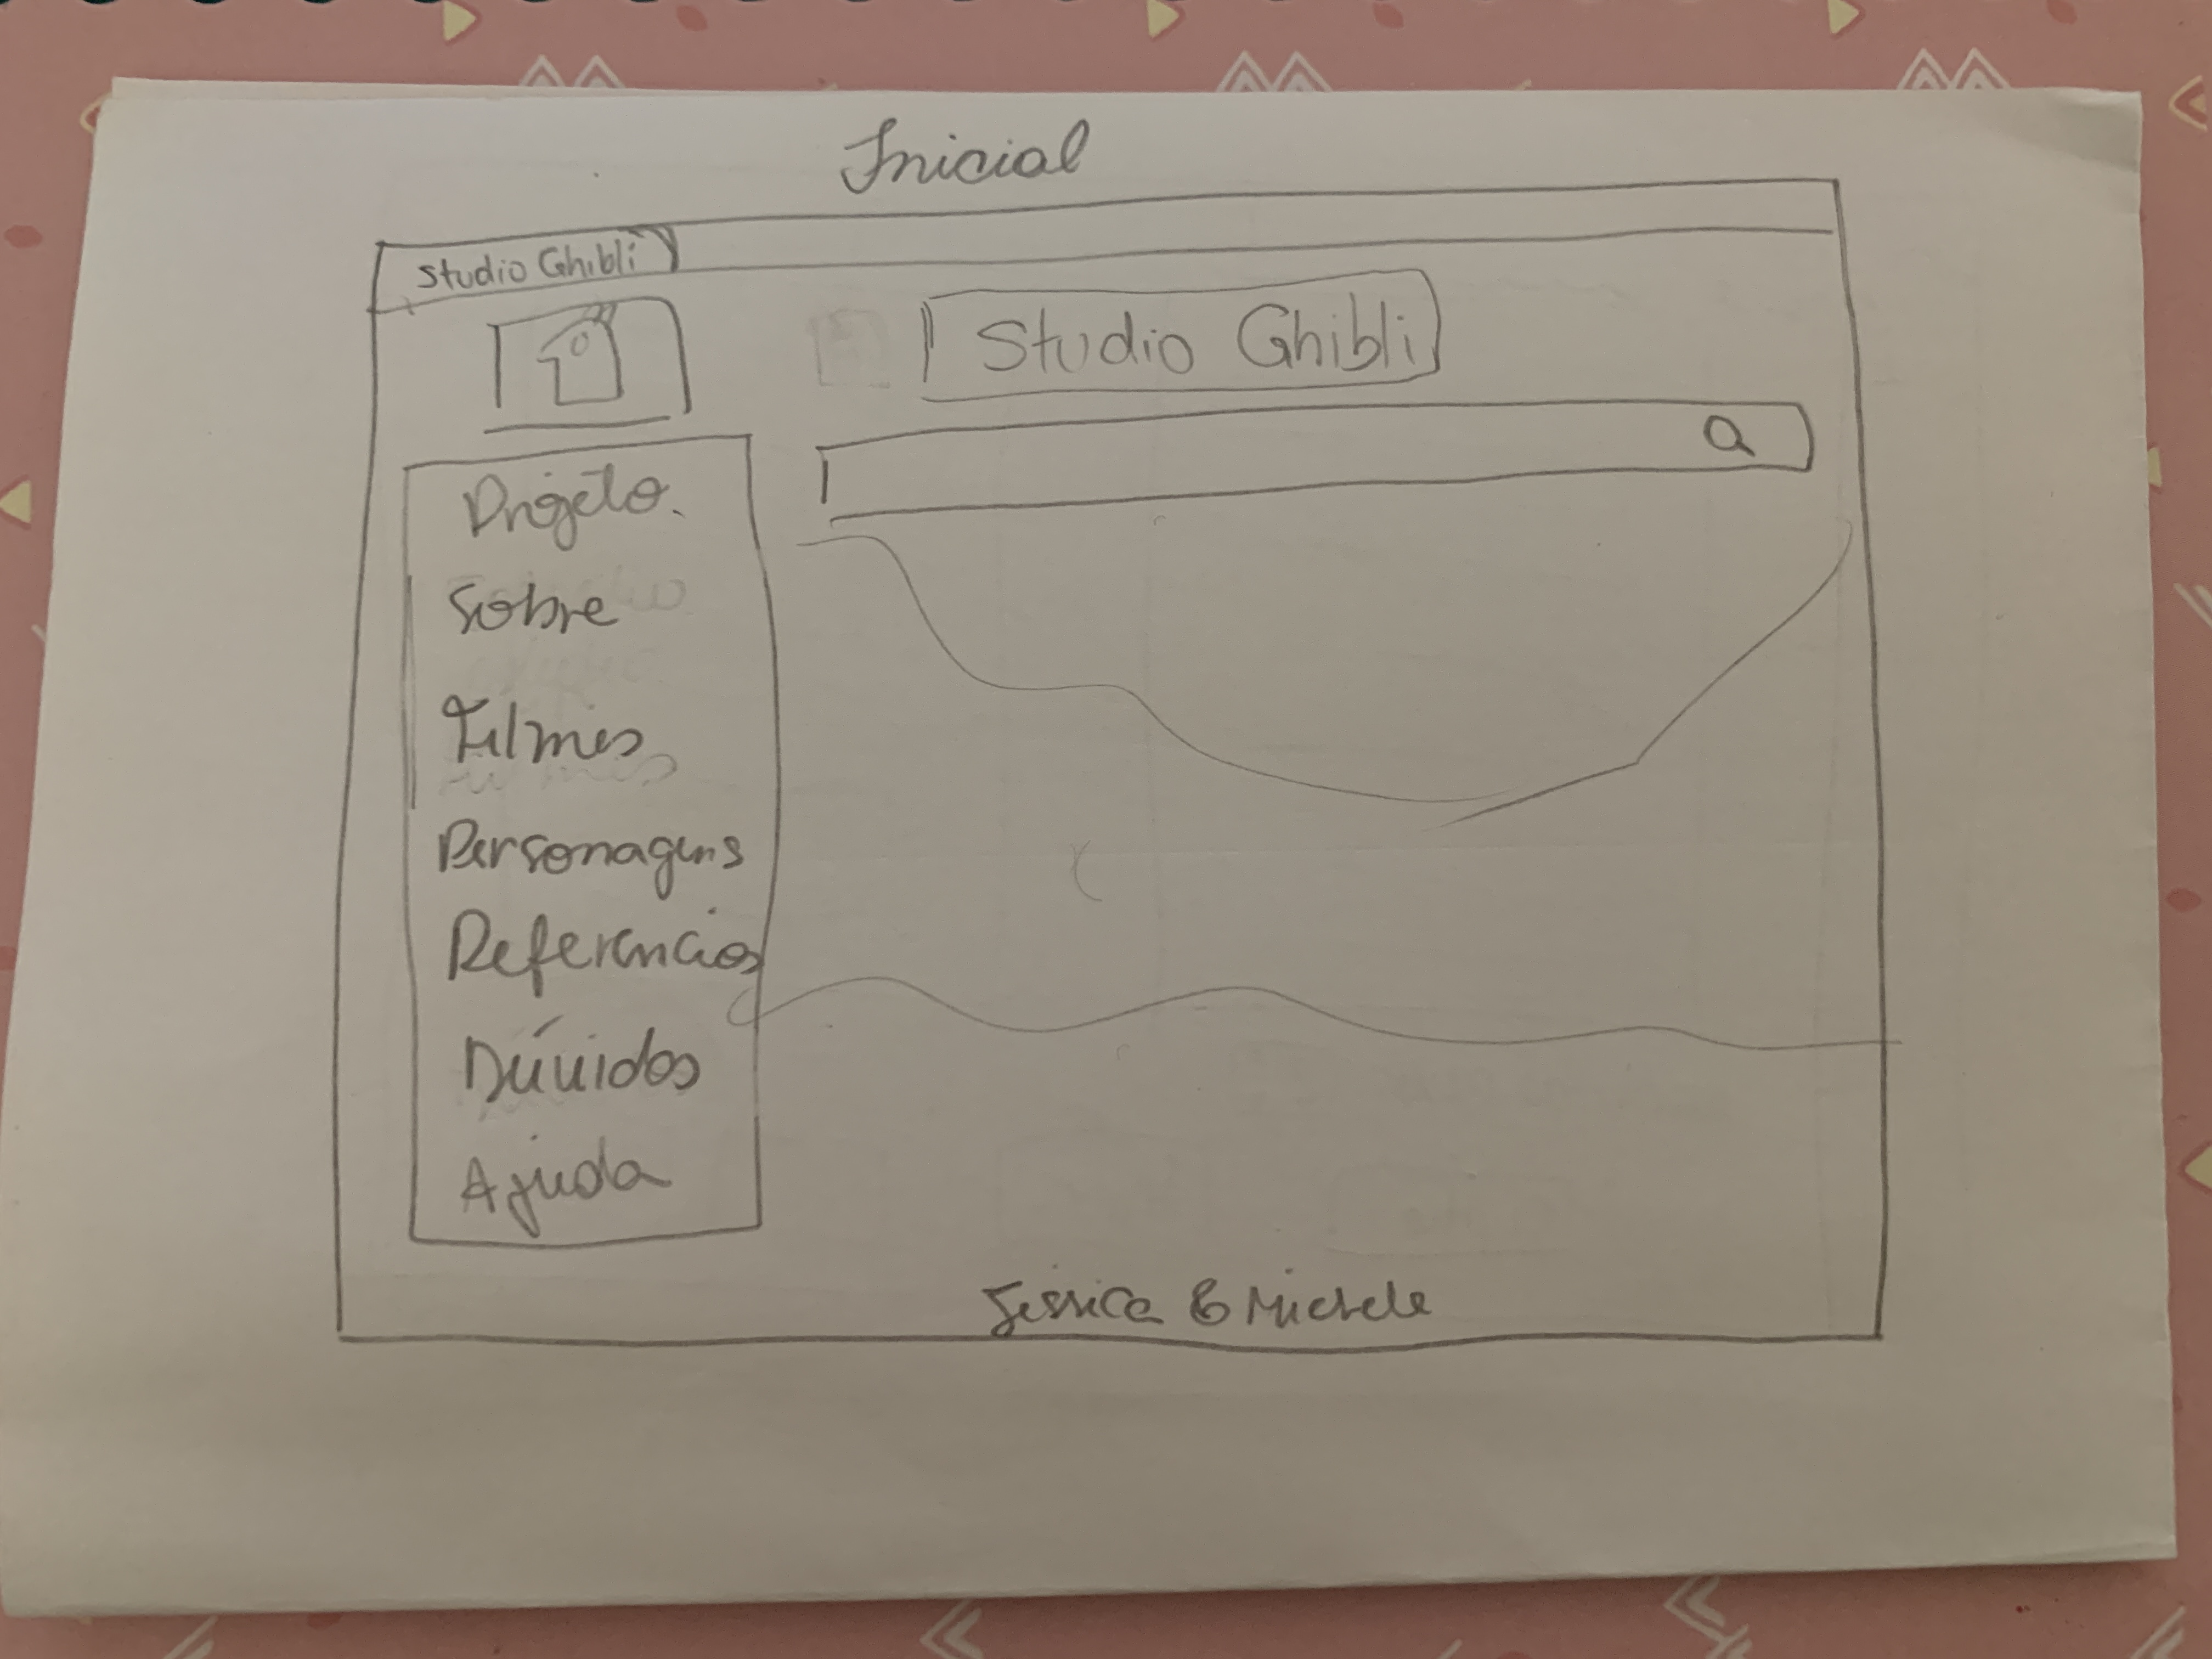 Inicial
Studio Ghibli
Studio Ghibli
Projeto.
Sobre
Filmes
Personagens
Referencias
Dúvidas
Ajuda
Jessica & Michele